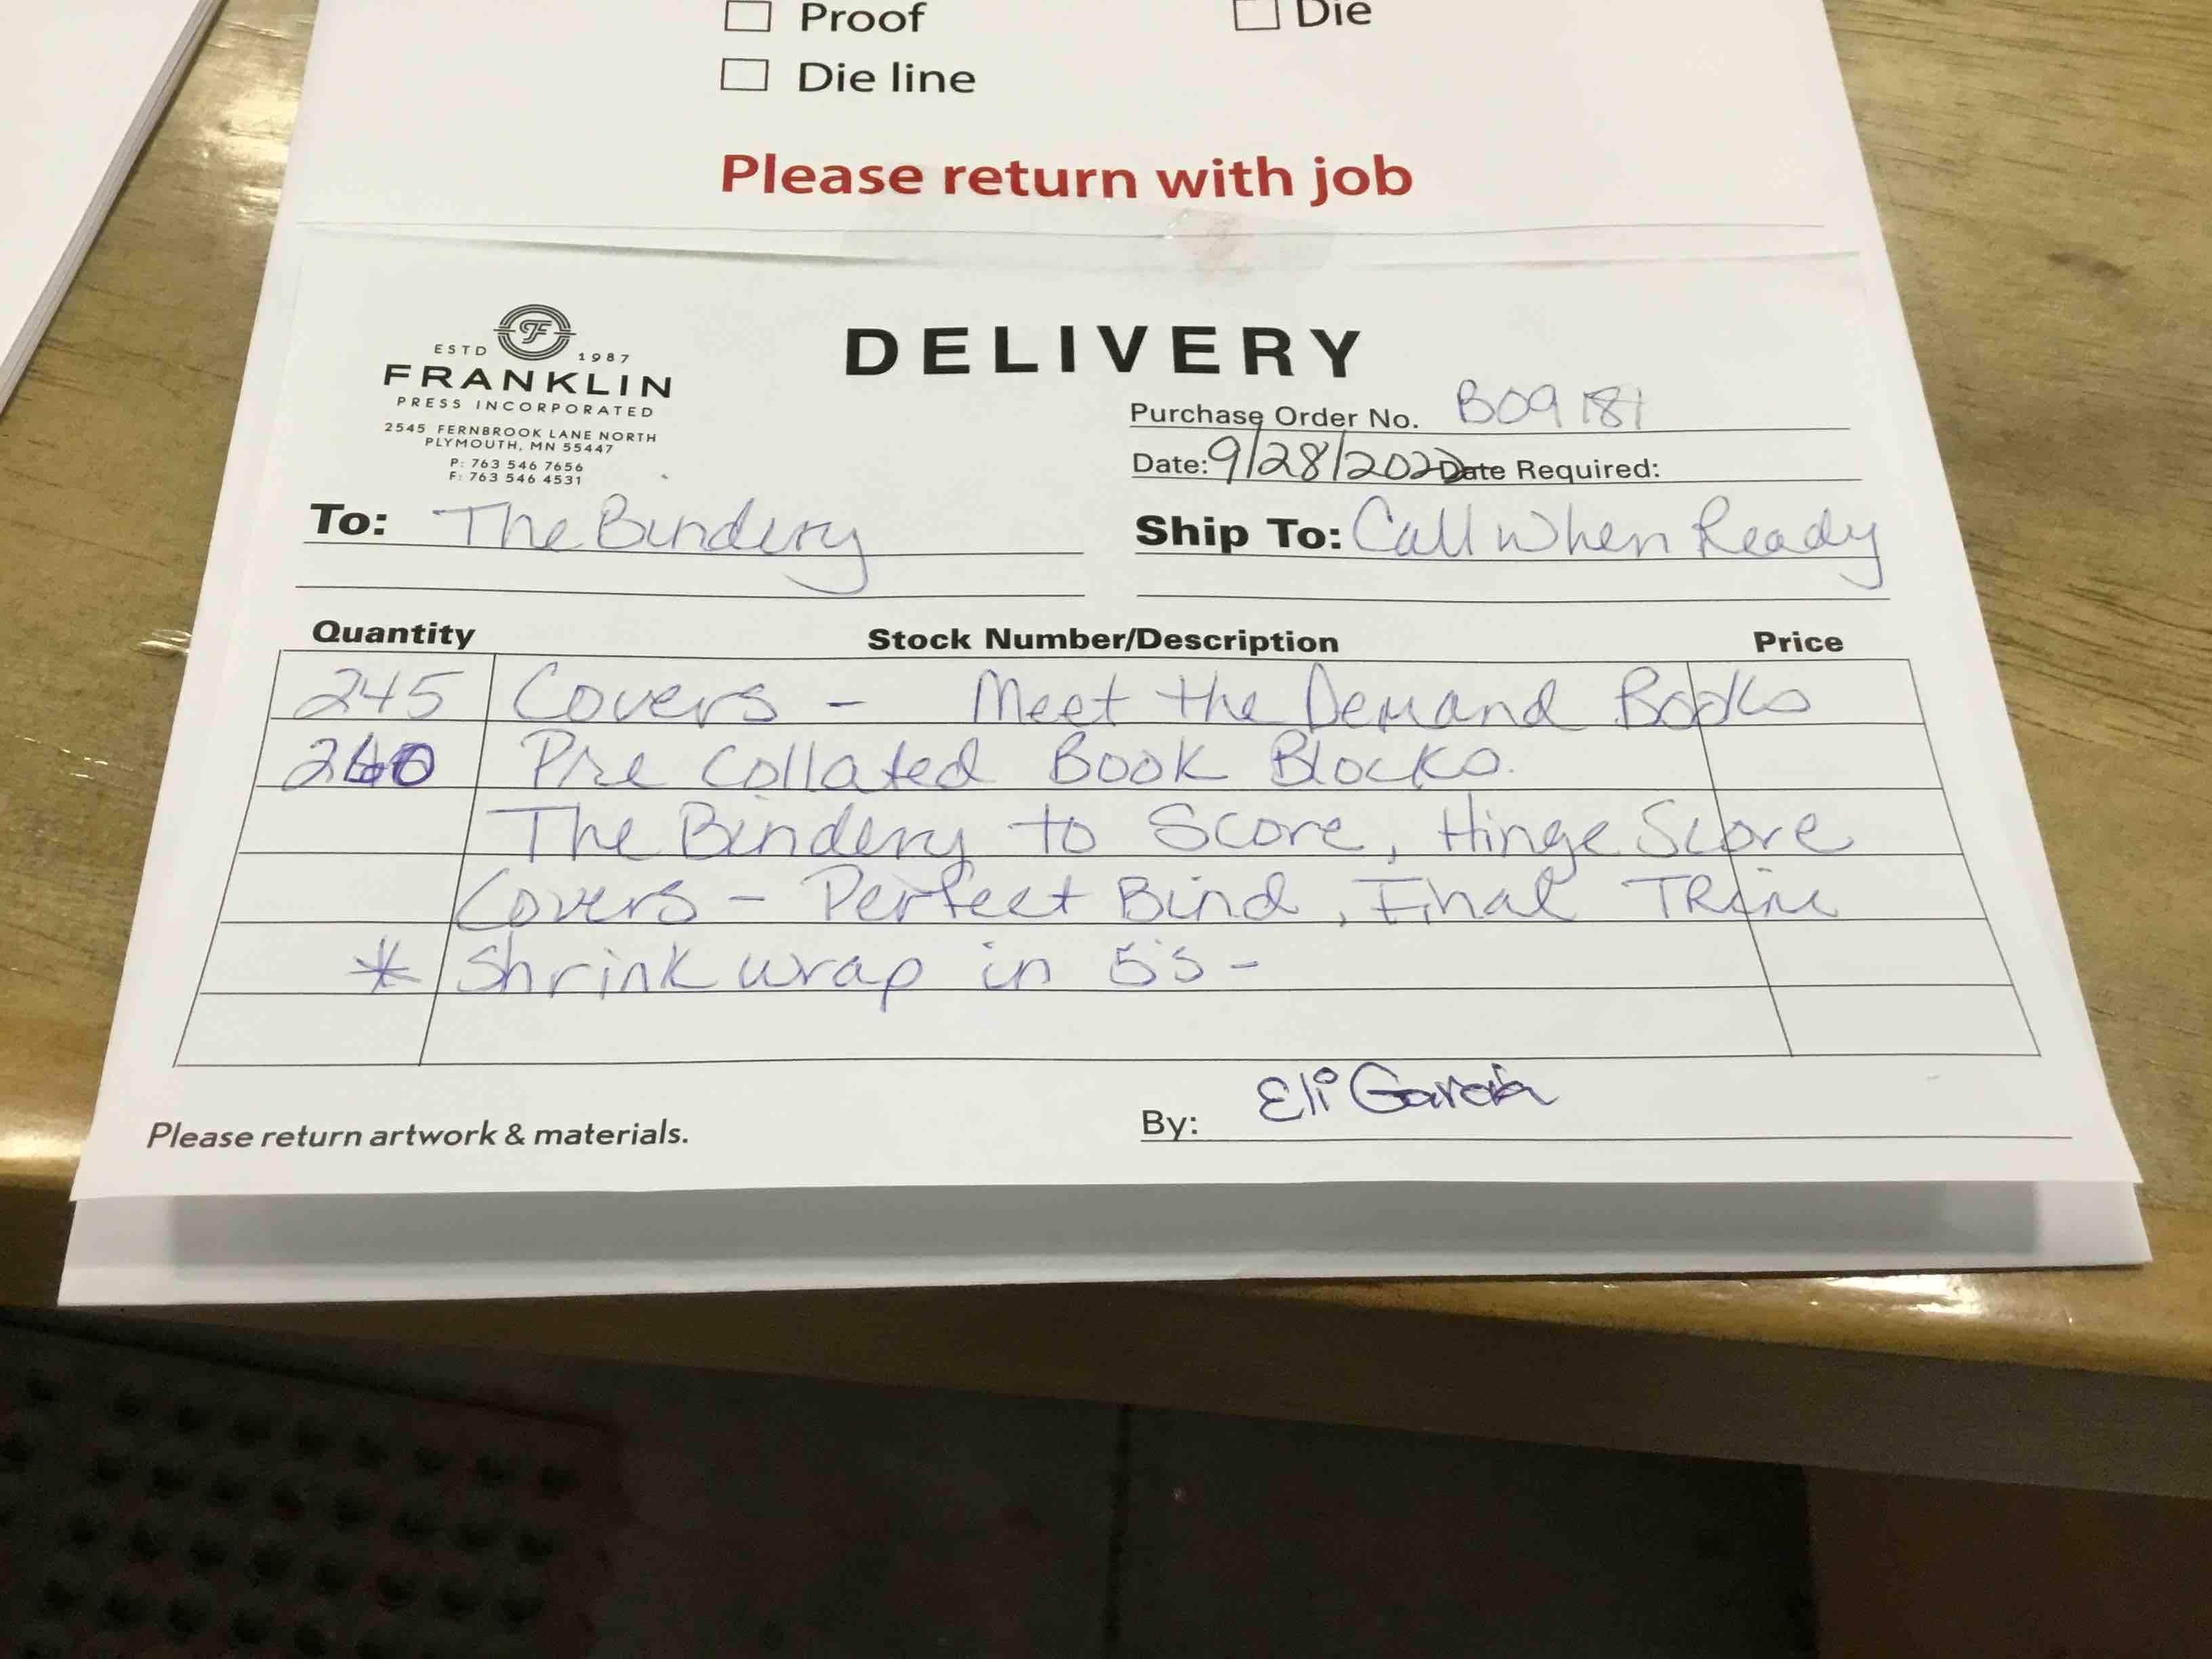 ☐ Proof ☐ Die
☐ Die line
Please return with job
ESTD 1987
FRANKLIN
PRESS INCORPORATED
2545 FERNBROOK LANE NORTH
PLYMOUTH, MN 55447
P: 763 546 7656
F: 763 546 4531
DELIVERY
Purchase Order No. B09181
Date: 9/28/2022 Date Required:
To: The Bindery
Ship To: Call When Ready
Quantity Stock Number/Description Price
245 Covers - Meet the Demand Books
Pre Collated Book Blocks.
The Bindery to Score, Hinge Score
Covers - Perfect Bind, Final TRim
* Shrink wrap in 5's -
Please return artwork & materials.
By: Eli Garcia